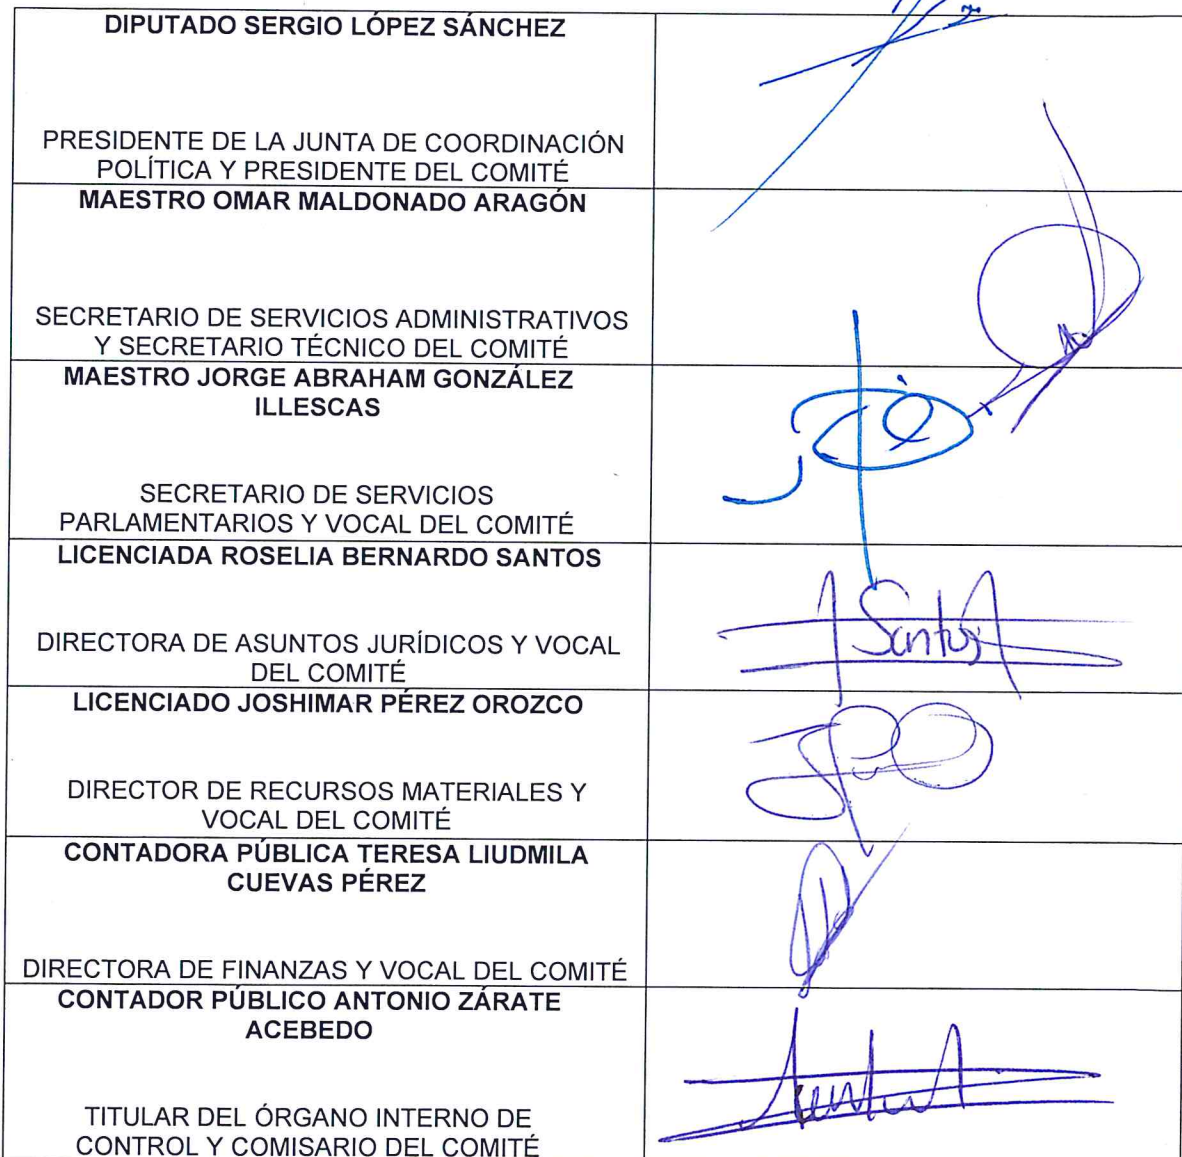 DIPUTADO SERGIO LÓPEZ SÁNCHEZ
PRESIDENTE DE LA JUNTA DE COORDINACIÓN
POLÍTICA Y PRESIDENTE DEL COMITÉ
MAESTRO OMAR MALDONADO ARAGÓN
SECRETARIO DE SERVICIOS ADMINISTRATIVOS
Y SECRETARIO TÉCNICO DEL COMITÉ
MAESTRO JORGE ABRAHAM GONZÁLEZ
ILLESCAS
SECRETARIO DE SERVICIOS
PARLAMENTARIOS Y VOCAL DEL COMITÉ
LICENCIADA ROSELIA BERNARDO SANTOS
Santos
DIRECTORA DE ASUNTOS JURÍDICOS Y VOCAL
DEL COMITÉ
LICENCIADO JOSHIMAR PÉREZ OROZCO
DIRECTOR DE RECURSOS MATERIALES Y
VOCAL DEL COMITÉ
CONTADORA PÚBLICA TERESA LIUDMILA
CUEVAS PÉREZ
DIRECTORA DE FINANZAS Y VOCAL DEL COMITÉ
CONTADOR PÚBLICO ANTONIO ZÁRATE
ACEBEDO
TITULAR DEL ÓRGANO INTERNO DE
CONTROL Y COMISARIO DEL COMITÉ